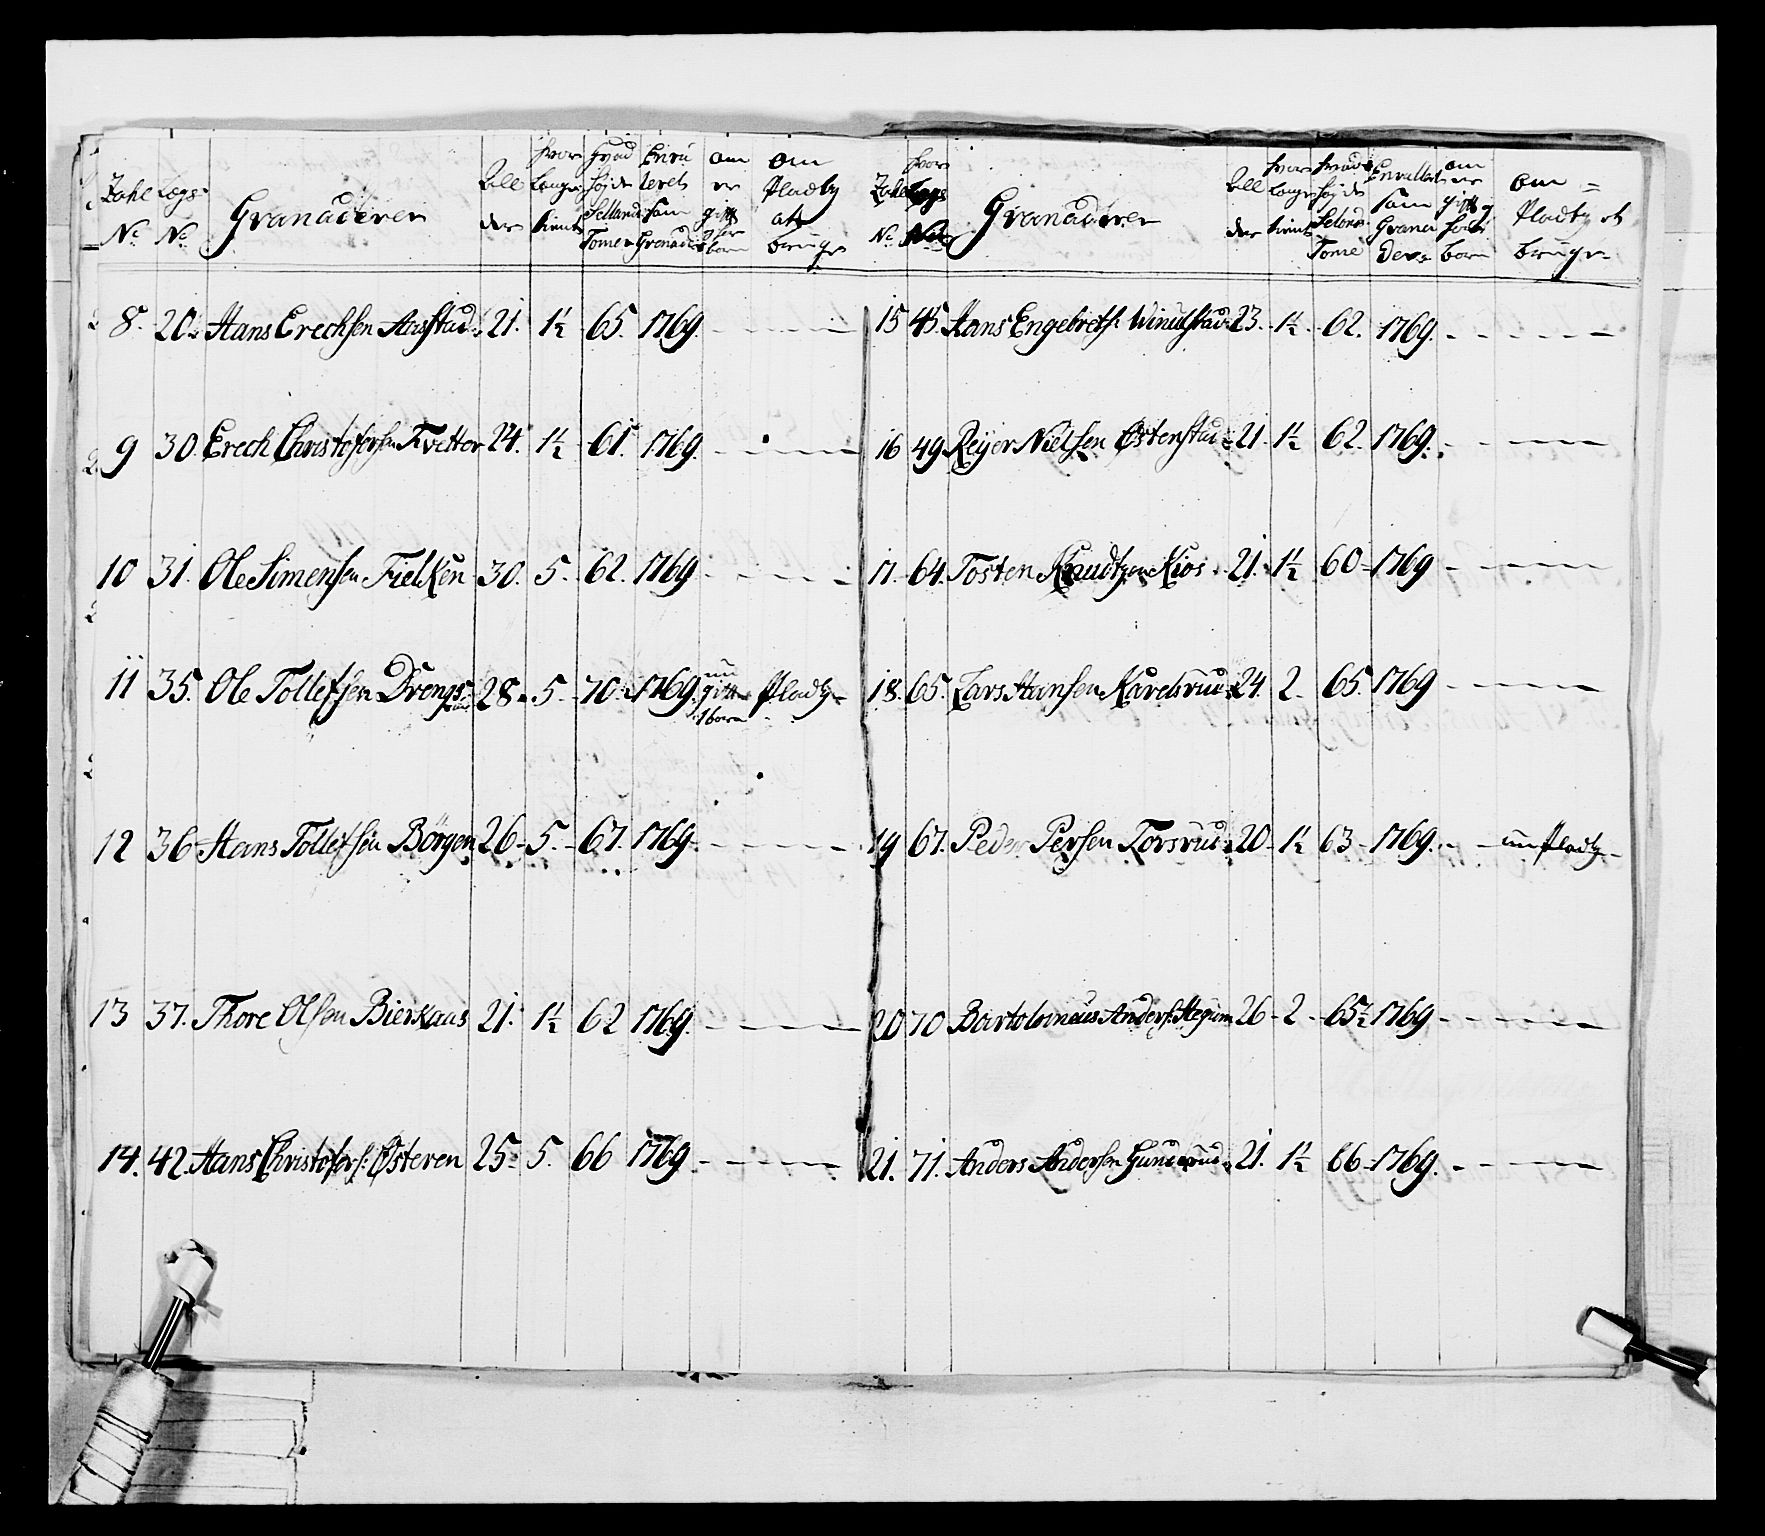 Zahl N.o Lægs N.o Granaderer
Alder hvor Længe tient Hvad høide Tomer Enrulleret som Grenader om er gift og har børn om Pladtz at bruge
8. 20. Hans Erechsen Aasstad 21. 1½ 65. 1769.
9 30. Erech Christophersen Tvetter 24. 1½ 61. 1769.
10 31. Ole Simensen Fielken 30. 5. 62. 1769
11 35. Ole Tollefsen Drengs= 28. 5. 70. 1769. gift 1 børn Pladtz
12 36 Hans Tollefsen Børgen 26. 5. 67. 1769
13 37. Thore Olsen Bierkaas 21. 1½ 62 1769.
14. 42. Hans Christofers: Østeren 25. 5. 66 1769
Zahl N.o Lægs Granaderer
Alder hvor Længe tient hvad høide Tome Enrulleret som Granadere om er gift og har børn om Pladtz at bruge
15 45. Hans Engebrets: 23. 1½ 62. 1769.
16 49. Reyer Nielsen Østenstad 21. 1½ 62. 1769.
17. 64. Tosten Knudtzen Kios 21. 1½ 60 1769
18. 65. Lars Hansen Karelsrud 24. 2. 65. 1769
19 67. Peder Persen Torsrud 20. 1½ 63 1769. un Pladtz
20 70 Bartolomeus Anders: Hegum 26 2 65½ 1769
21. 71. Anders Andersen Gunderud 21. 1½ 66 1769.